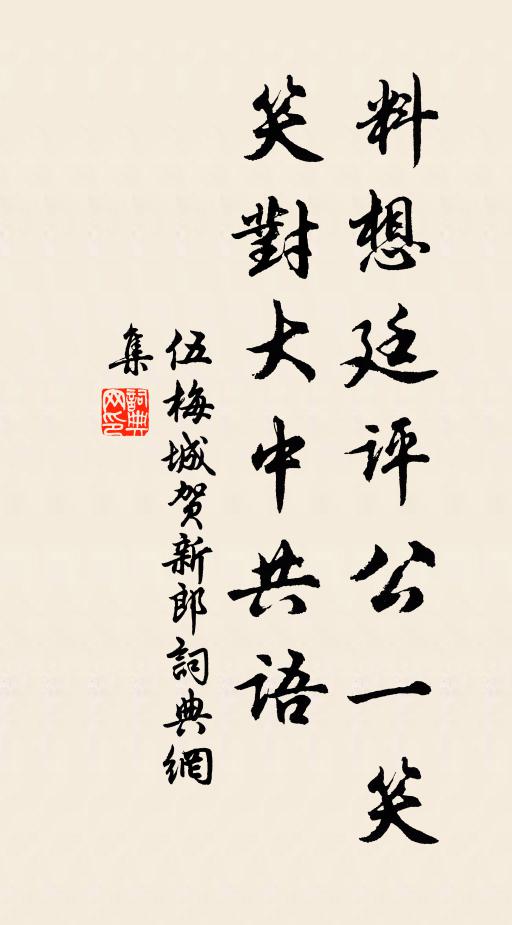 料想廷評公一笑
笑對大中共語
伍梅城賀新郎詞典網
集
詞典
网印